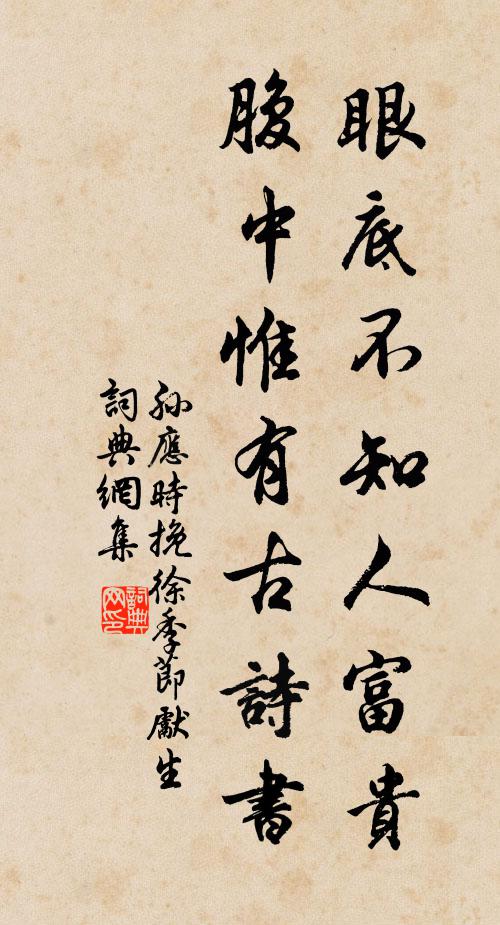 眼底不知人富貴
腹中惟有古詩書
孫應時挽徐季節獻生
詞典網集
詞典
网印